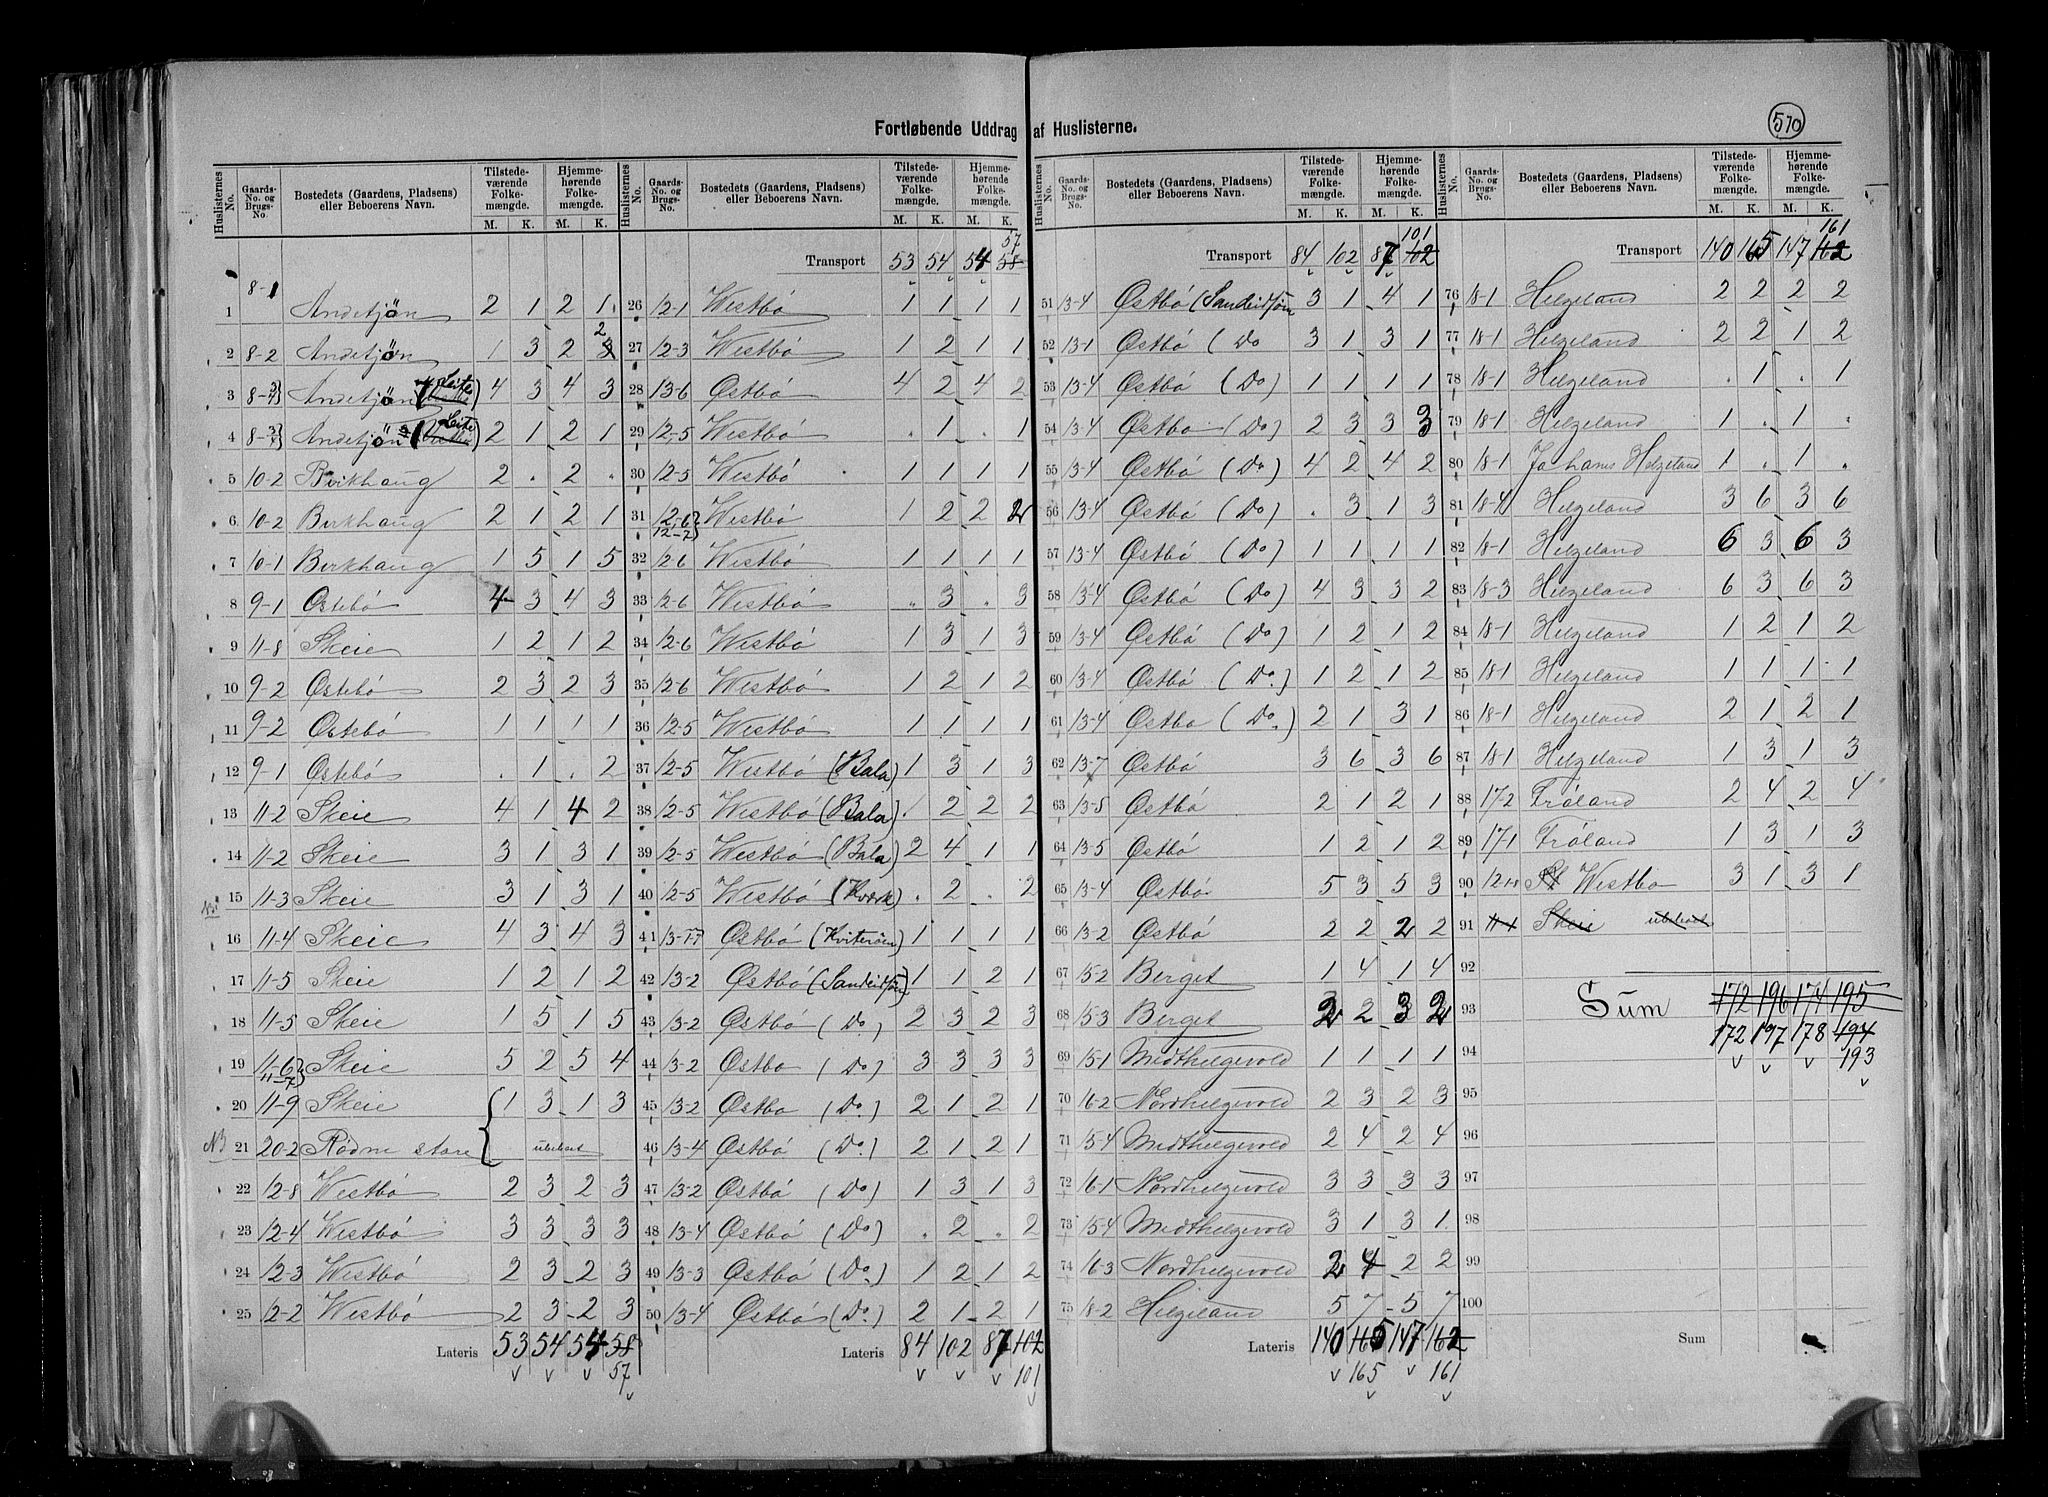 Fortløbende Uddrag af Huslisterne.
570
Huslisternes No. | Gaards-No. og Brugs-No. | Bostedets (Gaardens, Pladsens) eller Beboerens Navn. | Tilstedeværende Folkemængde. M. K. | Hjemmehørende Folkemængde. M. K.
1 8-1 Andetjön 2 1 2 1
2 8-2 Andetjön 1 3 2 3 2
3 8-3/4 Andetjön (Leite) 4 3 4 3
4 8-3/7 Andetjön (Leite) 2 1 2 1
5 10-2 Birkhaug 2 . 2 .
6 10-2 Birkhaug 2 1 2 1
7 10-1 Birkhaug 1 5 1 5
8 9-1 Östebö 4 3 4 3
9 11-8 Skeie 1 2 1 2
10 9-2 Östebö 2 3 2 3
11 9-2 Östebö 1 1 1 1
12 9-1 Östebö . 1 . 2
13 11-2 Skeie 4 1 4 2
14 11-2 Skeie 3 1 3 1
15 11-3 Skeie 3 1 3 1
16 11-4 Skeie 4 3 4 3
17 11-5 Skeie 1 2 1 2
18 11-5 Skeie 1 5 1 5
19 11-6 11-7 Skeie 5 2 5 4
20 11-9 Skeie 1 3 1 3
NB 21 20-2 Rödne store ubeboet
22 12-8 Westbó 2 3 2 3
23 12-4 Westbó 3 3 3 3
24 12-3 Westbó 2 3 2 3
25 12-2 Westbó 2 3 2 3
Lateris 53 54 54 58
57
Huslisternes No. | Gaards-No. og Brugs-No. | Bostedets (Gaardens, Pladsens) eller Beboerens Navn. | Tilstedeværende Folkemængde. M. K. | Hjemmehørende Folkemængde. M. K.
57
Transport 53 54 54 58
26 12-1 Westbó 1 1 1 1
27 12-3 Westbó 1 2 1 1
28 13-6 Østbó 4 2 4 2
29 12-5 Westbó . 1 . 1
30 12-5 Westbó 1 1 1 1
31 12-6 12-2 Westbó 1 2 2 2
32 12-6 Westbó 1 1 1 1
33 12-6 Westbó . 3 . 3
34 12-6 Westbó 1 3 1 3
35 12-6 Westbó 1 2 1 2
36 12-5 Westbó 1 1 1 1
37 12-5 Westbó (Bala) 1 3 1 3
38 12-5 Westbó (Bala) . 2 2 2
39 12-5 Westbó (Bala) 2 4 1 1
40 12-5 Westbó (Kværk) . 2 . 2
41 13-17 Østbó (Kviteröen) 1 1 1 1
42 13-2 Østbó (Sandeidsjöen) 1 1 2 1
43 13-2 Østbó (Do) 2 3 2 3
44 13-2 Østbo (Do) 3 3 3 3
45 13-2 Østbo (Do.) 2 1 2 1
46 13-4 Østbó (Do.) 2 1 2 1
47 13-2 Østbó (Do) 1 3 1 3
48 13-4 Østbó (Do) . 2 . 2
49 13-3 Østbó (Do.) 1 2 1 2
50 13-4 Østbó (Do.) 2 1 2 1
Lateris 84 102 87 102
101
Huslisternes No. | Gaards-No. og Brugs-No. | Bostedets (Gaardens, Pladsens) eller Beboerens Navn. | Tilstedeværende Folkemængde. M. K. | Hjemmehørende Folkemængde. M. K.
101
Transport 84 102 87 102
51 13-4 Østbó (Sandeidsjöen 3 1 4 1
52 13-1 Østbó (Do 3 1 3 1
53 13-4 Østbó (Do) 1 1 1 1
54 13-4 Østbo (Do) 2 3 3 3
55 13-4 Østbó (Do) 4 2 4 2
56 13-4 Østbó (Do) . 3 1 3
57 13-4 Østbó (Do) 1 1 1 1
58 13-4 Østbó (Do) 4 3 3 2
59 13-4 Østbó (Do) 1 2 1 2
60 13-4 Østbó (Do.) 1 2 1 2
61 13-4 Østbo (Do.) 2 1 3 1
62 13-7 Østbó 3 6 3 6
63 13-8 Østbó 2 1 2 1
64 13-5 Østbó 1 2 1 2
65 13-4 Østbó 5 3 5 3
66 13-2 Østbó 2 2 2 2
67 15-2 Berget 1 4 1 4
68 15-3 Berget 2 2 3 2
69 15-1 Midthelgevold 1 1 1 1
70 16-2 Nordhelgevold 2 3 2 3
71 15-4 Midthelgevold 2 4 2 4
72 16-1 Nordhelgevold 3 3 3 3
73 15-4 Midthelgevold 3 1 3 1
74 16-3 Nordhelgevold 2 4 2 2
75 18-2 Helgeland 5 7 5 7
Lateris 140 165 147 162
165 161
Huslisternes No. | Gaards-No. og Brugs-No. | Bostedets (Gaardens, Pladsens) eller Beboerens Navn. | Tilstedeværende Folkemængde. M. K. | Hjemmehørende Folkemængde. M. K.
161
Transport 140 165 147 162
76 18-1 Helgeland 2 2 2 2
77 18-1 Helgeland 2 2 1 2
78 18-1 Helgeland . 1 . 1
79 18-1 Helgeland 1 . 1 .
80 18-1 Johans Helgeland 1 . 1 .
81 18-4 Helgeland 3 6 3 6
82 18-1 Helgeland 6 3 6 3
83 18-3 Helgeland 6 3 6 3
84 18-1 Helgeland 1 2 1 2
85 18-1 Helgeland 1 1 1 1
86 18-1 Helgeland 2 1 2 1
87 18-1 Helgeland 1 3 1 3
88 17-2 Fróland 2 4 2 4
89 17-1 Fróland 1 3 1 3
90 Westbo 3 1 3 1
91 11-4 Skeie ubeboet
92
93 Sum 172 196 174 195
172 197 178 194
94 193
95
96
97
98
99
100
Sum